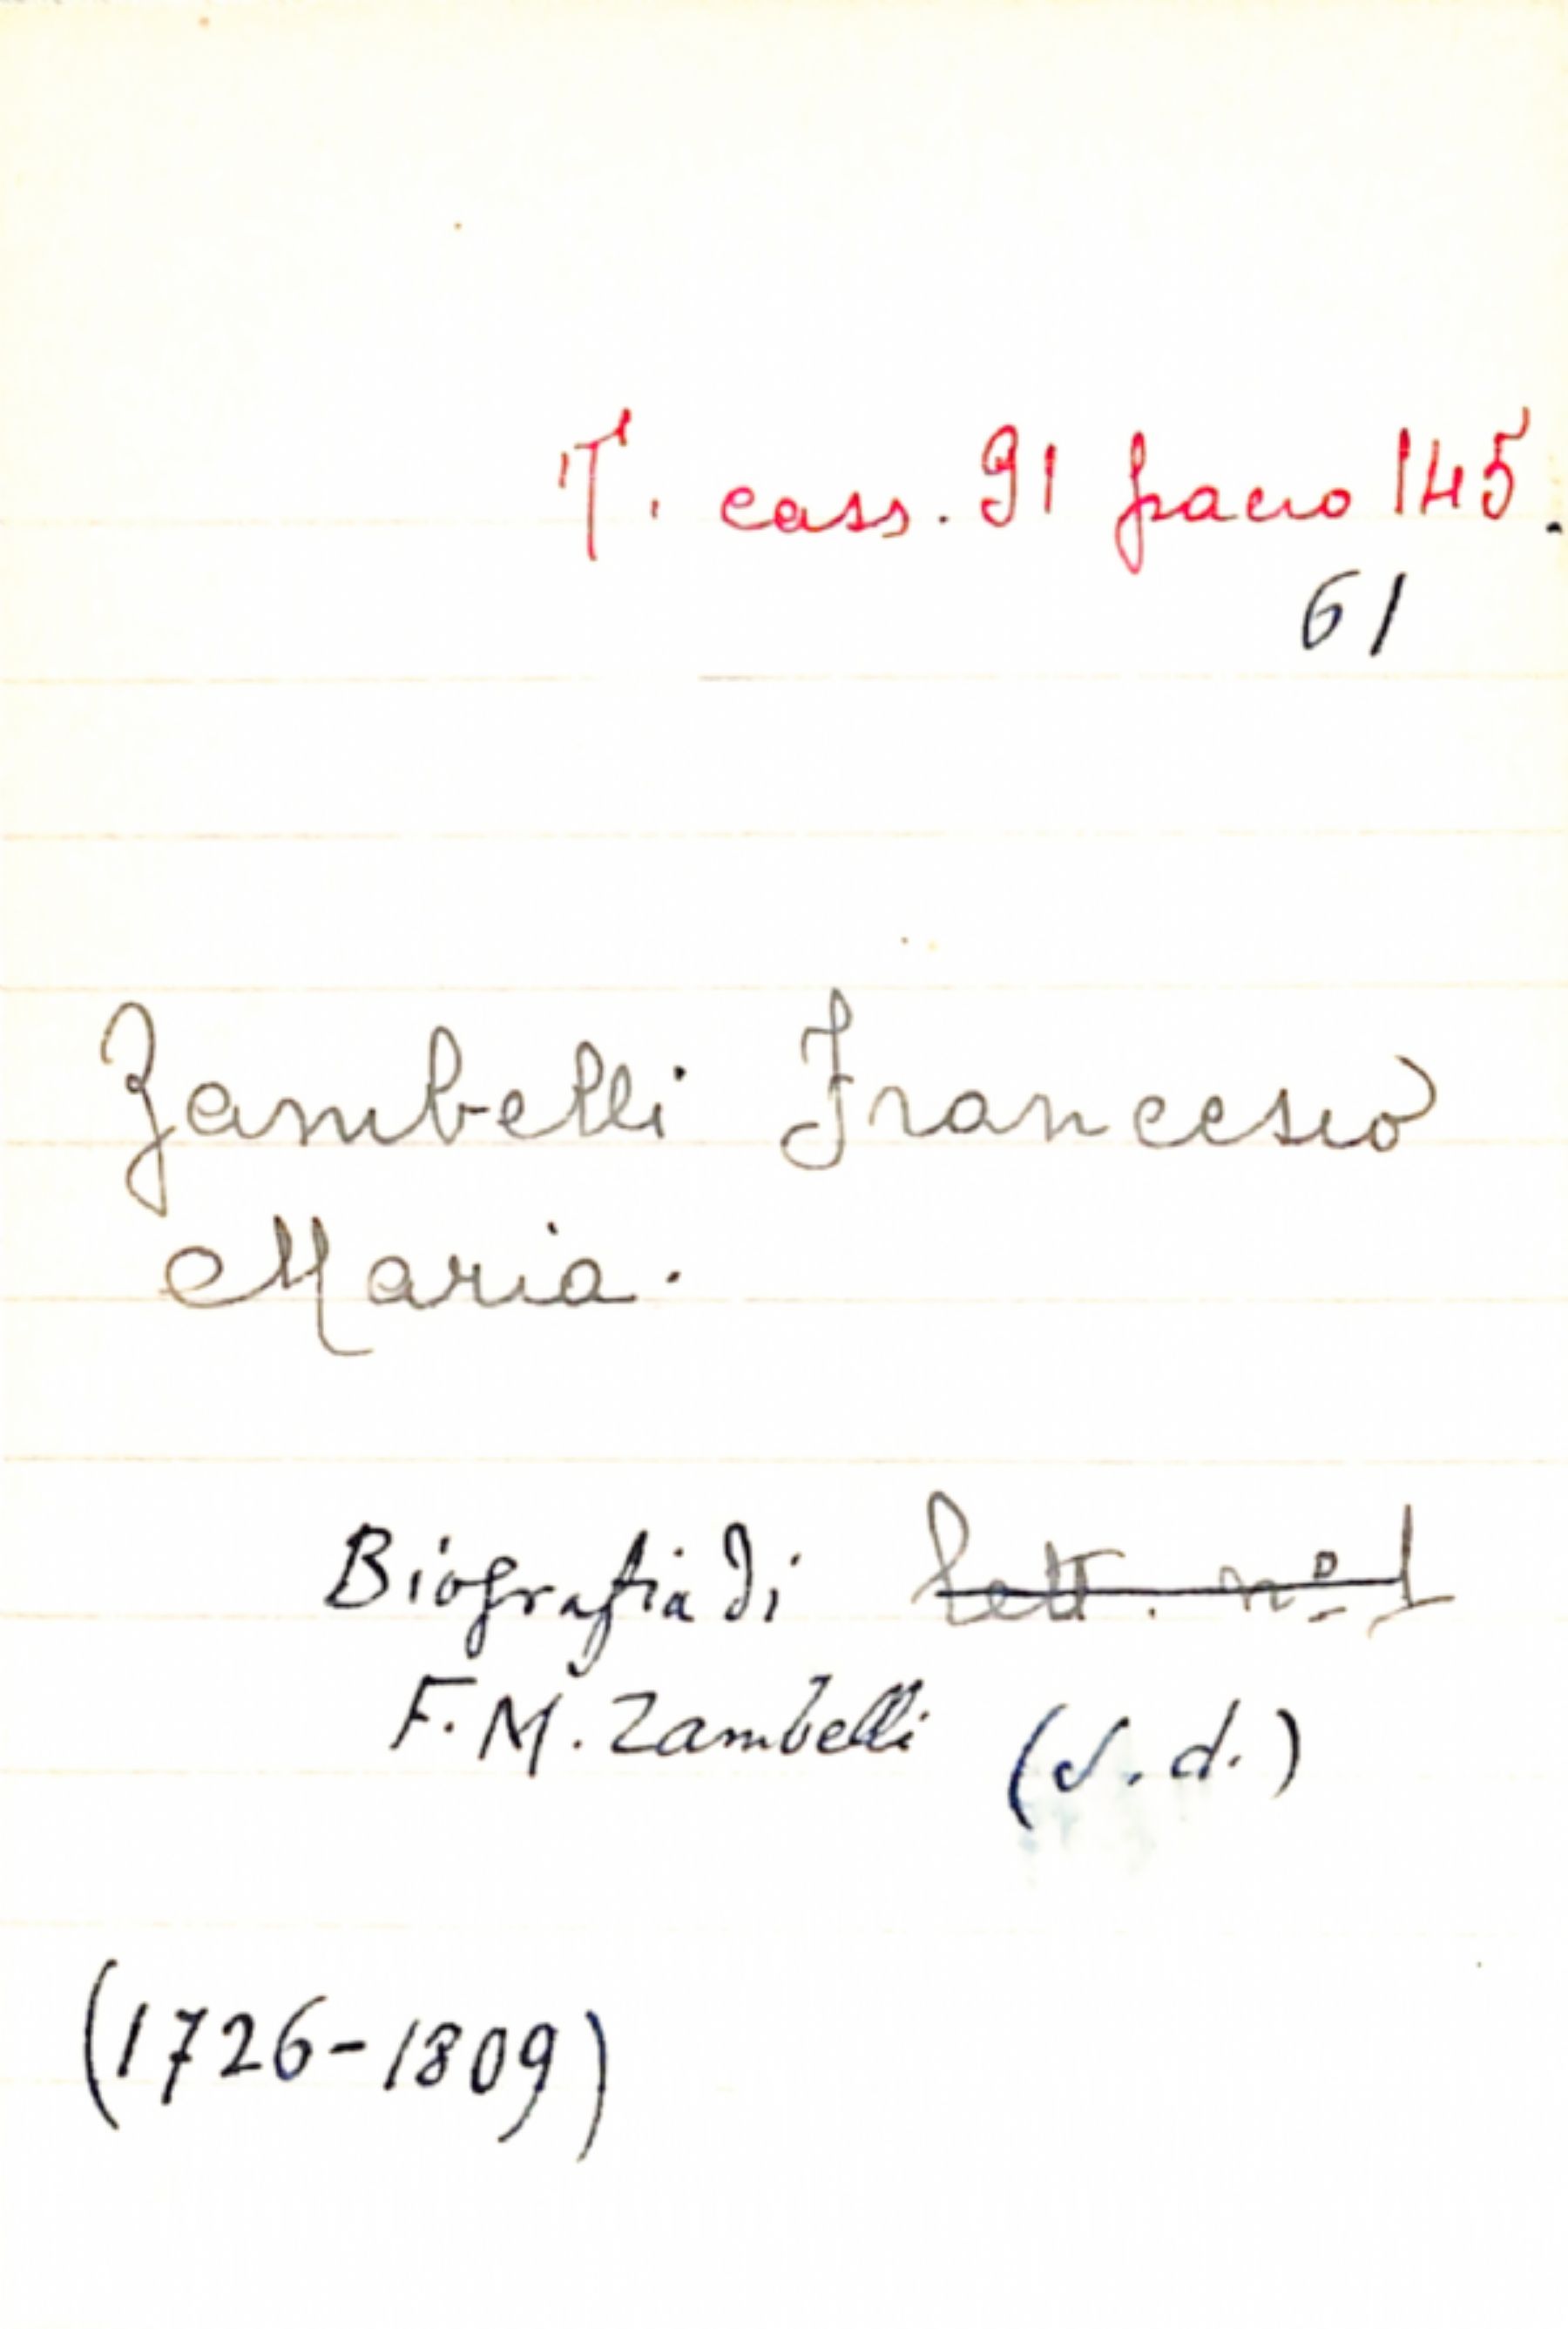 T. cass. 91 fasc. 145.
61
Zambelli Francesco
Maria.
Biografia di lett. nº 1
F. M. Zambelli (s. d.)
(1726-1809)